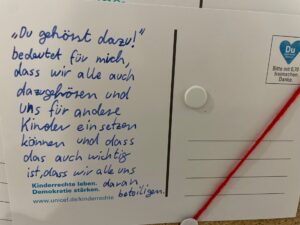 „Du gehörst dazu!"
bedeutet für mich,
dass wir alle auch
dazugehören und
uns für andere
Kinder einsetzen
können und dass
das auch wichtig
ist, dass wir alle uns
daran
beteiligen.
Kinderrechte leben.
Demokratie stärken.
www.unicef.de/kinderrechte
Du
Bitte mit 0,70
freimachen
Danke.